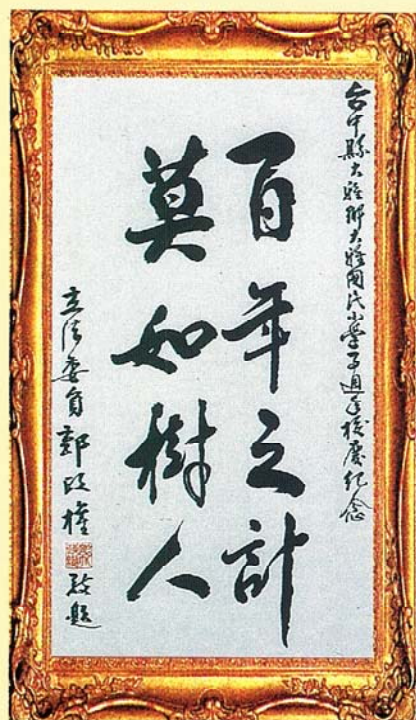 台中縣大雅鄉大雅國民小學百週年校慶紀念
百年之計
莫如樹人
立法委員郭政權
敬題